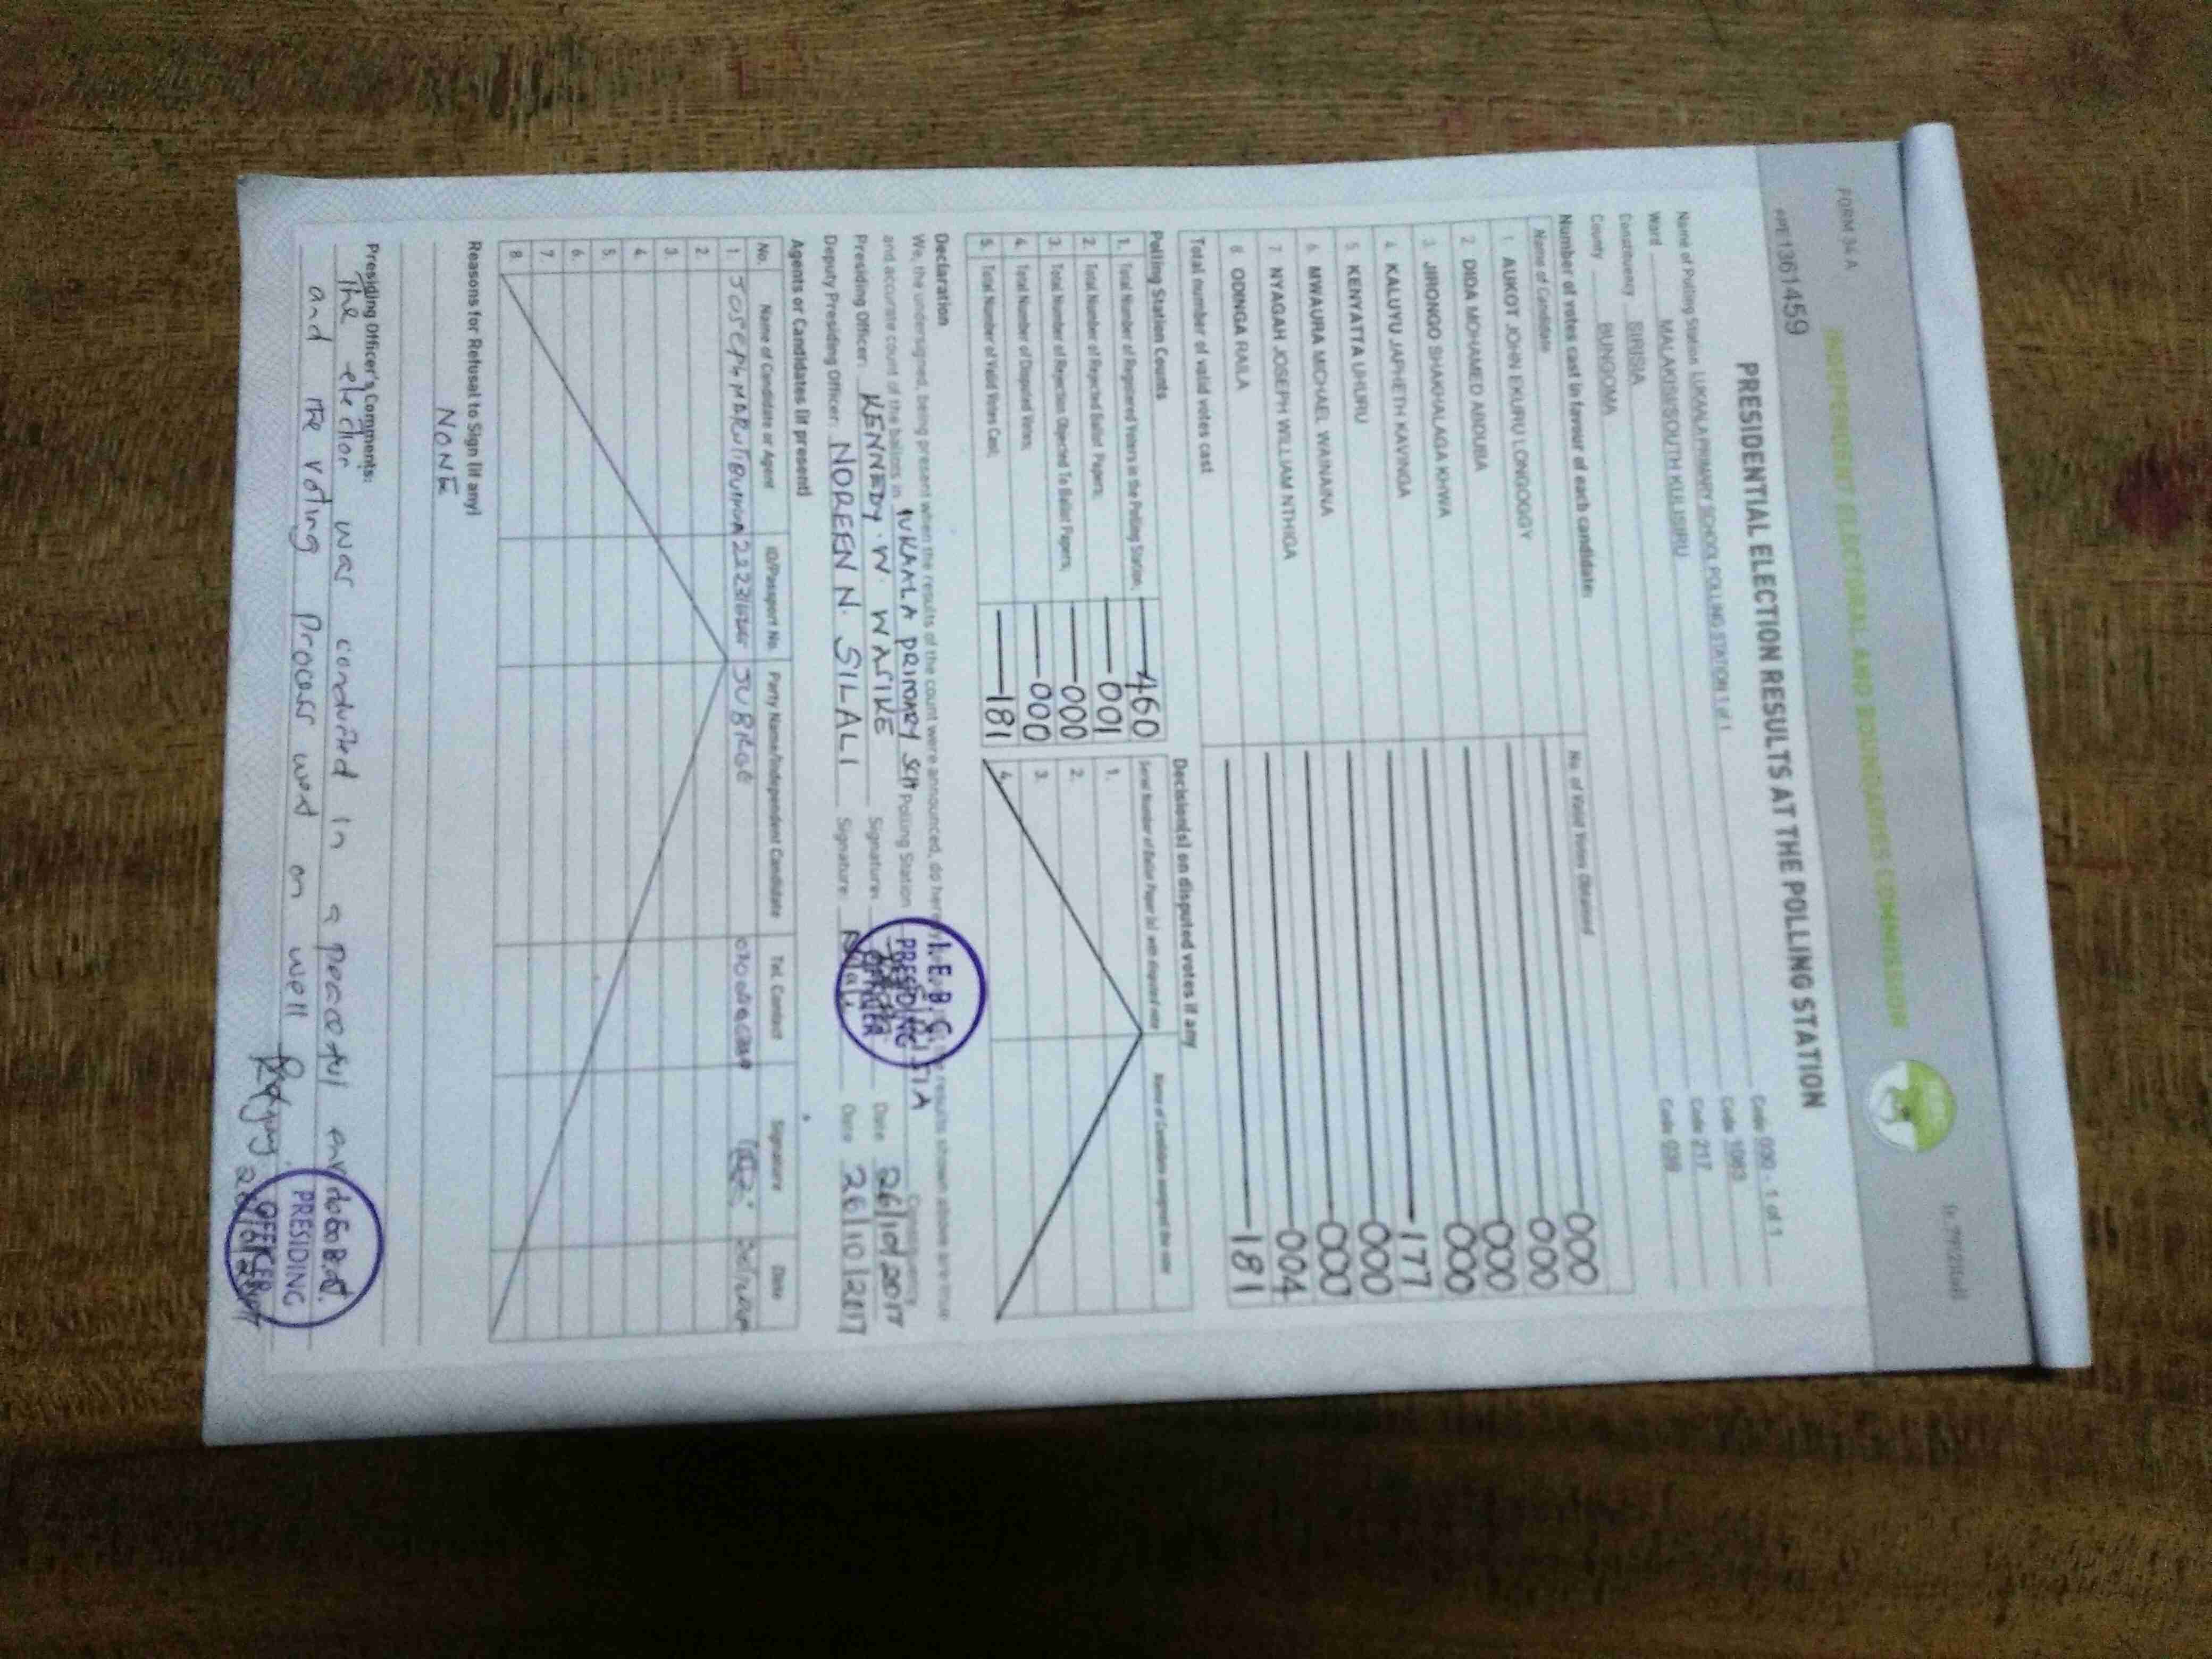 FORM 34 A
INDEPENDENT ELECTORAL AND BOUNDARIES COMMISSION
PPE 1361459
PRESIDENTIAL ELECTION RESULTS AT THE POLLING STATION
Name of Polling Station LUKAALA PRIMARY SCHOOL POLLING STATION 1 of 1 Code 090 - 1 of 1
Ward MALAKISI/SOUTH KULISIRU Code 1083
Constituency SIRISIA Code 217
County BUNGOMA Code 039
Number of votes cast in favour of each candidate:
Name of Candidate No. of Valid Votes Obtained
1. AUKOT JOHN EKURU LONGOGGY 000
2. DIDA MOHAMED ABDUBA 000
3. JIRONGO SHAKHALAGA KHWA 000
4. KALUYU JAPHETH KAVINGA 000
5. KENYATTA UHURU 177
6. MWAURA MICHAEL WAINAINA 000
7. NYAGAH JOSEPH WILLIAM NTHIGA 000
8. ODINGA RAILA 004
Total number of valid votes cast 181
Polling Station Counts
1. Total Number of Registered Voters in the Polling Station; 460
2. Total Number of Rejected Ballot Papers; 001
3. Total Number of Rejection Objected To Ballot Papers; 000
4. Total Number of Disputed Votes; 000
5. Total Number of Valid Votes Cast; 181
Decision(s) on disputed votes if any
Serial Number of Ballot Paper (s) with disputed vote Name of Candidate assigned the vote
1.
2.
3.
4.
Declaration
We, the undersigned, being present when the results of the count were announced, do here results shown above are true
and accurate count of the ballots in LUKAALA PRIMARY SCH Polling Station Constituency
Presiding Officer: KENNEDY. W. WASIKE Signature: Date 26/10/2017
Deputy Presiding Officer: NOREEN N. SILALI Signature: Date 26/10/2017
I.E.B.C.
PRESIDING
OFFICER
Agents or Candidates (if present)
No. Name of Candidate or Agent ID/Passport No. Party Name/Independent Candidate Tel. Contact Signature Date
1 JOSEPH JUBILEE
2
3.
4.
5.
6.
7.
8.
Reasons for Refusal to Sign (if any)
NONE
Presiding Officer's Comments:
The election was conducted in a peaceful
and the voting process went on well
PRESIDING
OFFICER